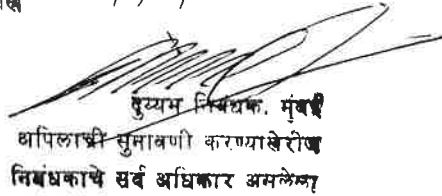 दुय्यम निबंधक, मुंबई
अपिलाची सुनावणी करण्याखेरीज
निबंधकाचे सर्व अधिकार असलेला